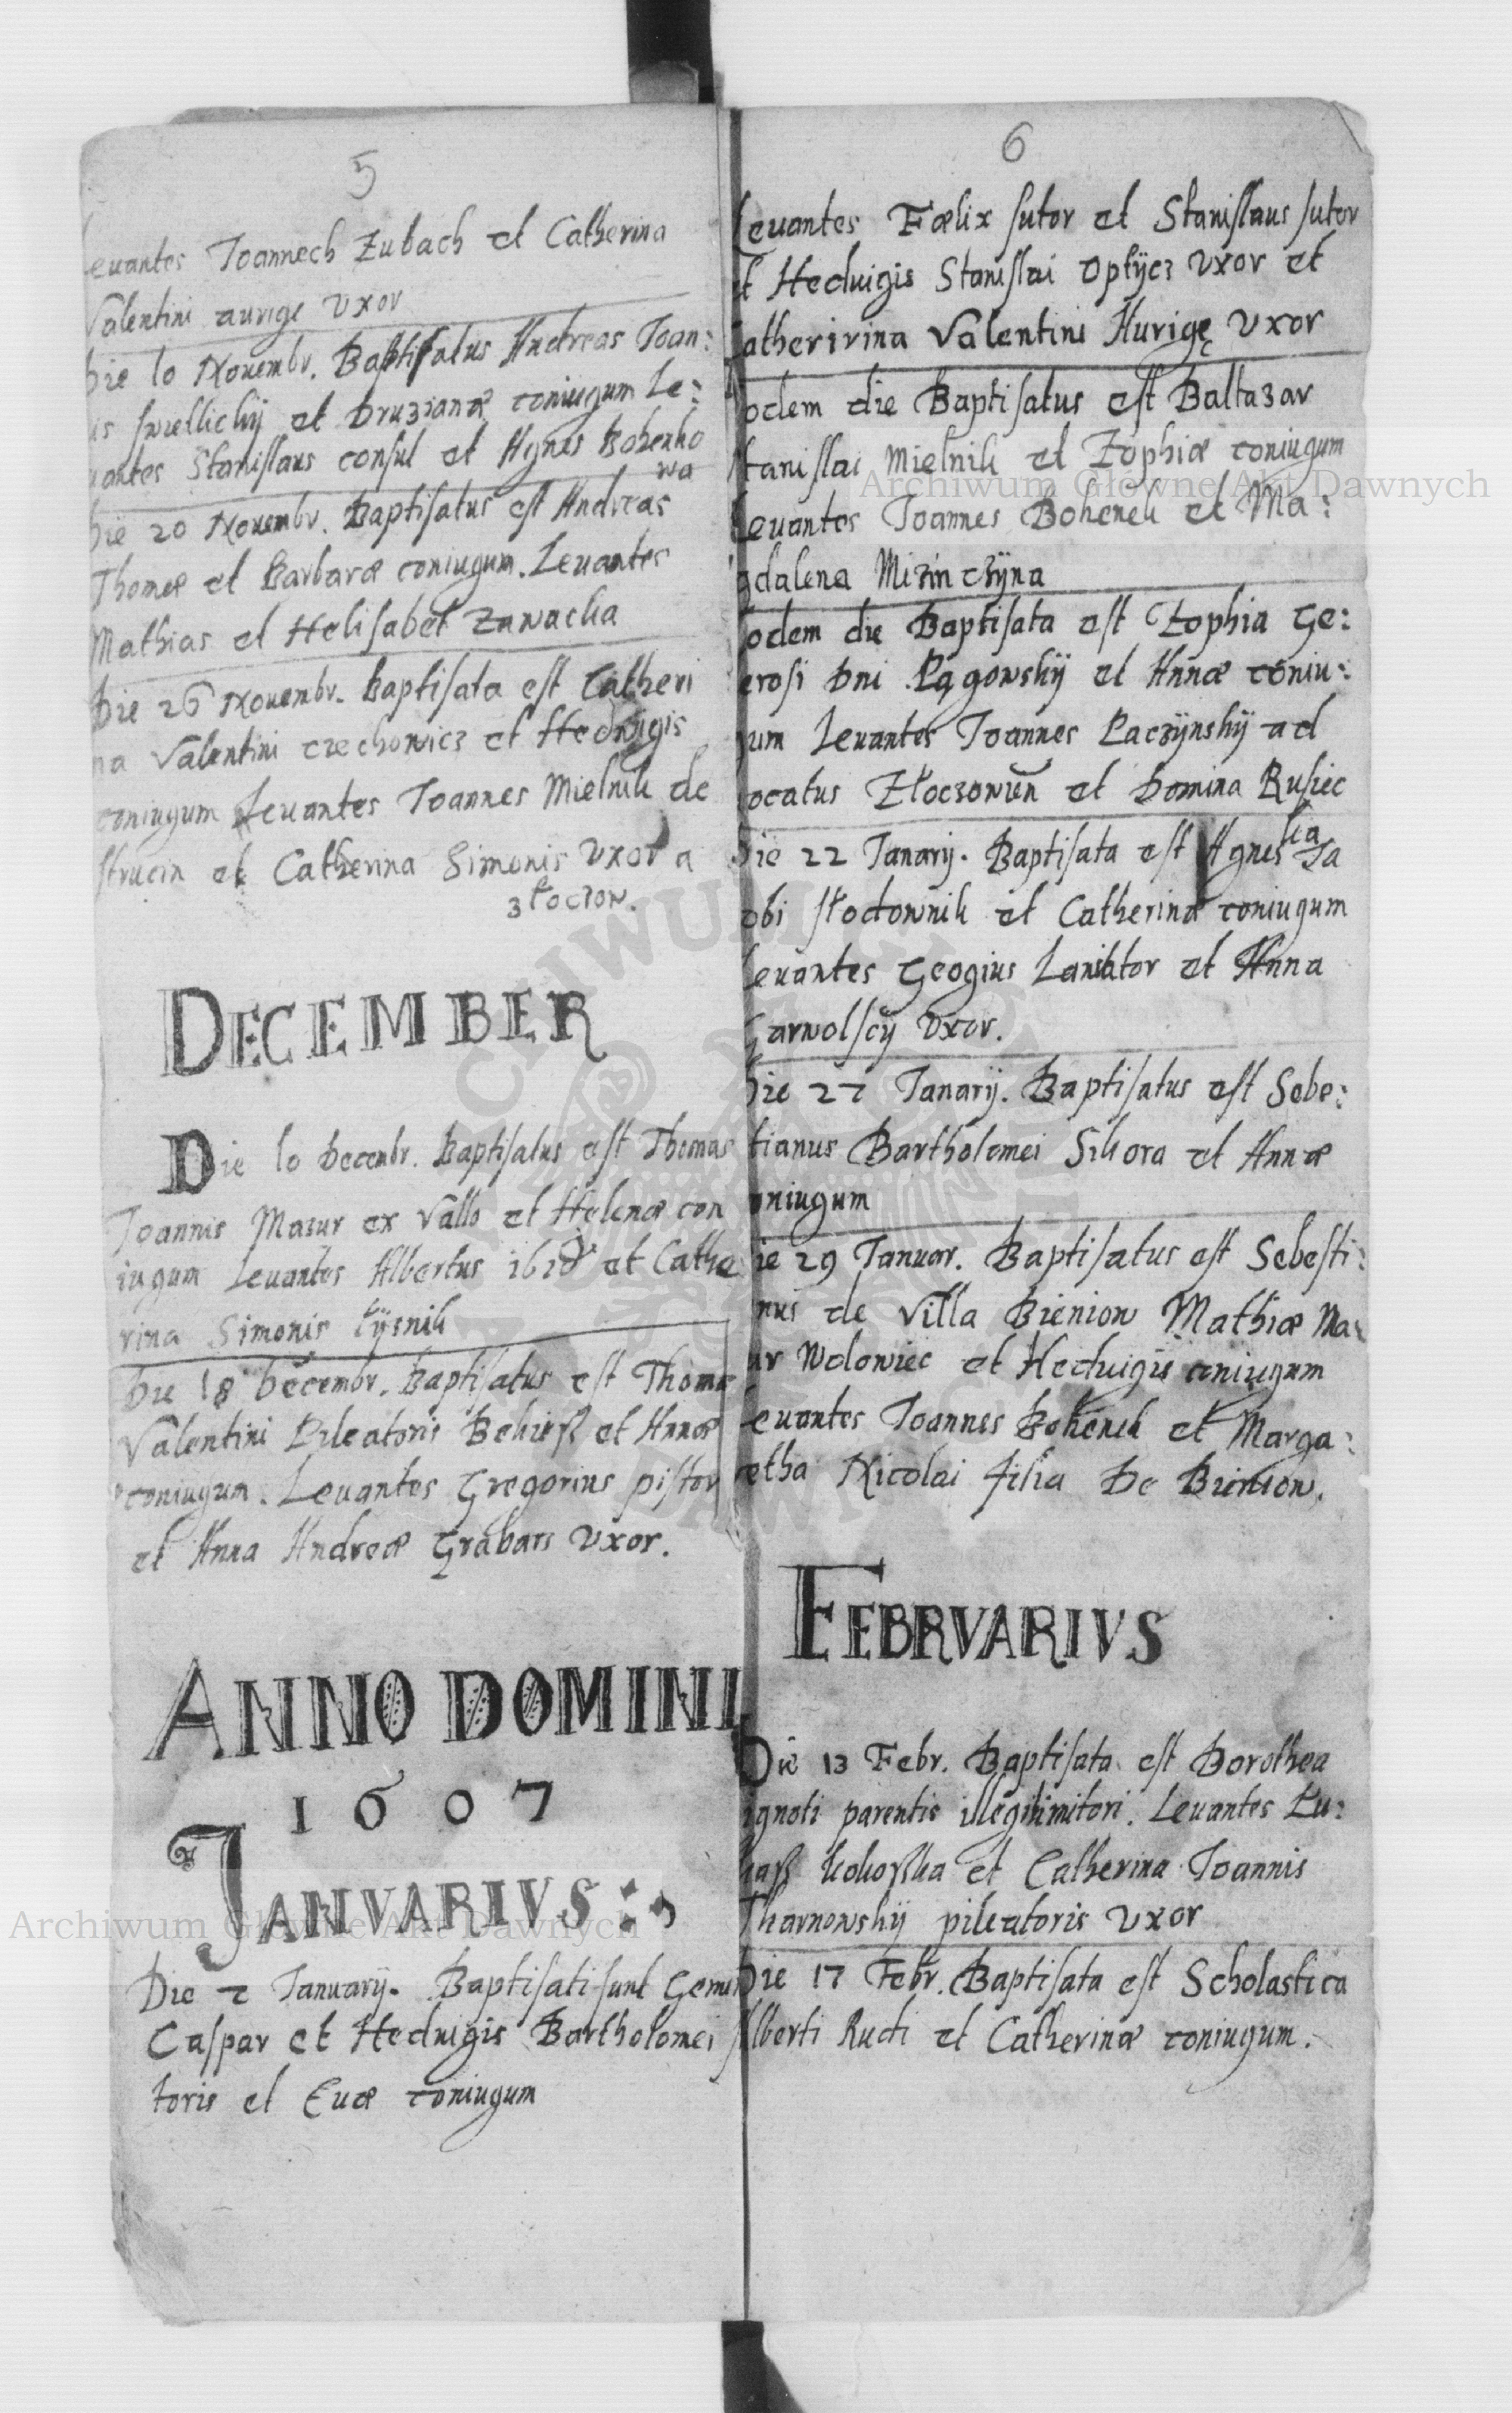 5
Leuantes Joannech Zubach et Catherina
Valentini aurige Vxor
Die 10 Nouembr. Baptisatus Andreas Joan:
is et Druzianæ coniugum Le:
uantes Stanislaus consul et Agnes Bohenko
wa
Die 20 Nouembr. Baptisatus est Andreas
Thomæ et Barbaræ coniugum. Leuantes
Mathias et Helisabet Zawacka
Die 26 Nouembr. Baptisata est Catheri
na Valentini czechowicz et Hedwigis
coniugum Leuantes Joannes Mielnik de
strucin et Catherina Simonis Vxor a
złoczow.
DECEMBER
Die 10 Decembr. Baptisatus est Thomas
Joannis Mazur ex Vallo et Helenæ con
iugum Leuantes Albertus et Cathe
rina Simonis
Die 18 Decembr. Baptisatus est Thomas
Valentini Pileatoris et Annæ
coniugum. Leuantes Gregorius pistor
et Anna Andreæ Grabars Vxor.
ANNO DOMINI
1607
JANVARIVS
Die 7 Januarij. Baptisati sunt Gemi
Caspar et Hedwigis Bartholomei
toris et Euæ coniugum
6
Leuantes Fælix sutor et Stanislaus sutor
et Heduigis Stanislai Optÿcz Vxor et
atheririna Valentini Aurigę Vxor
odem die Baptisatus est Baltazar
tanislai Mielnik et Zophiæ coniugum
Leuantes Joannes Bohenek et Ma:
gdalena
odem die Baptisata est Zophia Ge:
erosi Dni Pągowskÿ et Annæ coniu:
gum Leuantes Joannes Paczÿnskÿ ad
ocatus et Domina Rusiec
Die 22 Janarij. Baptisata est Agneska Ja
obi słodownik et Catherinæ coniugum
Leuantes Geogius Laniator et Anna
arwolscÿ Vxor.
Die 27 Janarij. Baptisatus est Sebe:
tianus Bartholomei Sikora et Annæ
oniugum
ie 29 Januar. Baptisatus est Sebesti:
nus de Villa Bienion Mathiæ Ma
ur Wolowiec et Heduigis coniugum
euantes Joannes Bohenek et Marga:
etha Nicolai filia De Bienion.
FEBRVARIVS
Die 13 Febr. Baptisata est Dorothea
ignoti parentis illegitimitori. Leuantes Lu:
kasz Kokoszka et Catherina Joannis
Tharnowskÿ pileatoris Vxor
Die 17 Febr. Baptisata est Scholastica
Alberti Rudi et Catherinæ coniugum.
Archiwum Główne Akt Dawnych
Archiwum Główne Akt Dawnych